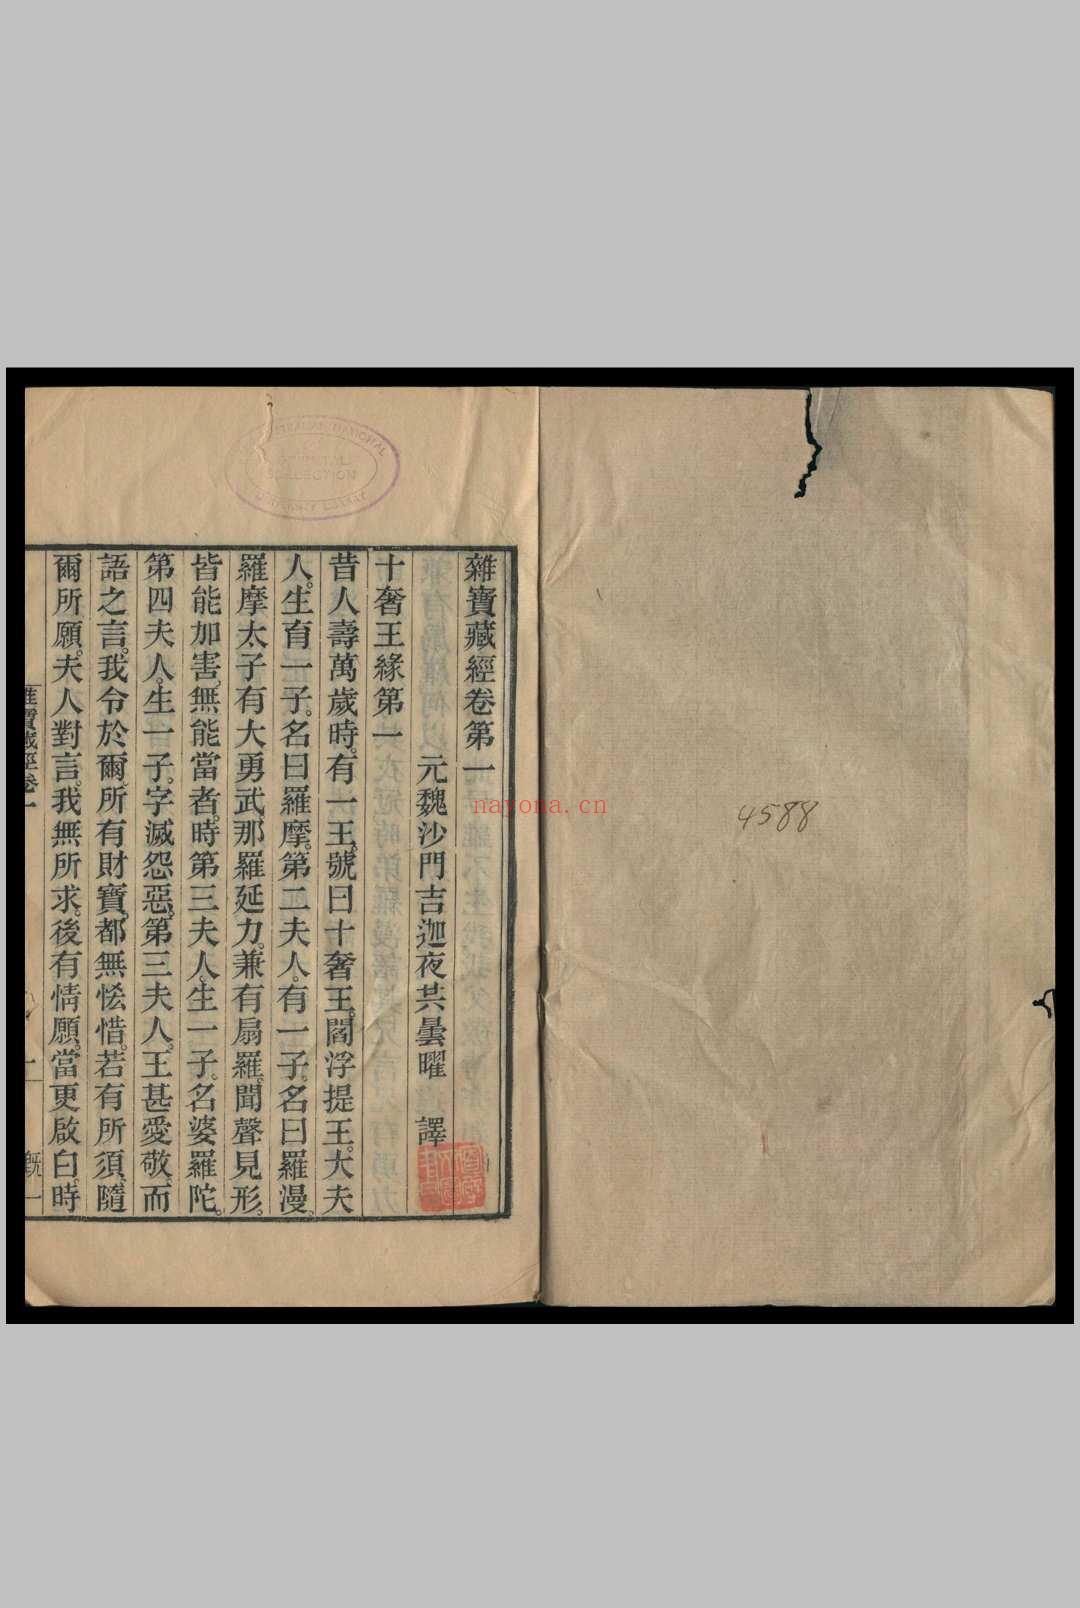 4588
雜寶藏經卷第一
元魏沙門吉迦夜共曇曜　譯
十奢王緣第一
昔人壽萬歲時。有一王。號曰十奢王。閻浮提王。大夫
人。生育一子。名曰羅摩。第二夫人。有一子。名曰羅漫。
羅摩太子有大勇武那羅延力。兼有扇羅。聞聲見形。
皆能加害。無能當者。時第三夫人。生一子。名婆羅陀。
第四夫人。生一子。字滅怨惡。第三夫人。王甚愛敬。而
語之言。我今於爾。所有財寶。都無恡惜。若有所須。隨
爾所願。夫人對言。我無所求。後有情願。當更啟白。時
雜寶藏經卷一
一
nayona.cn
COLLECTION